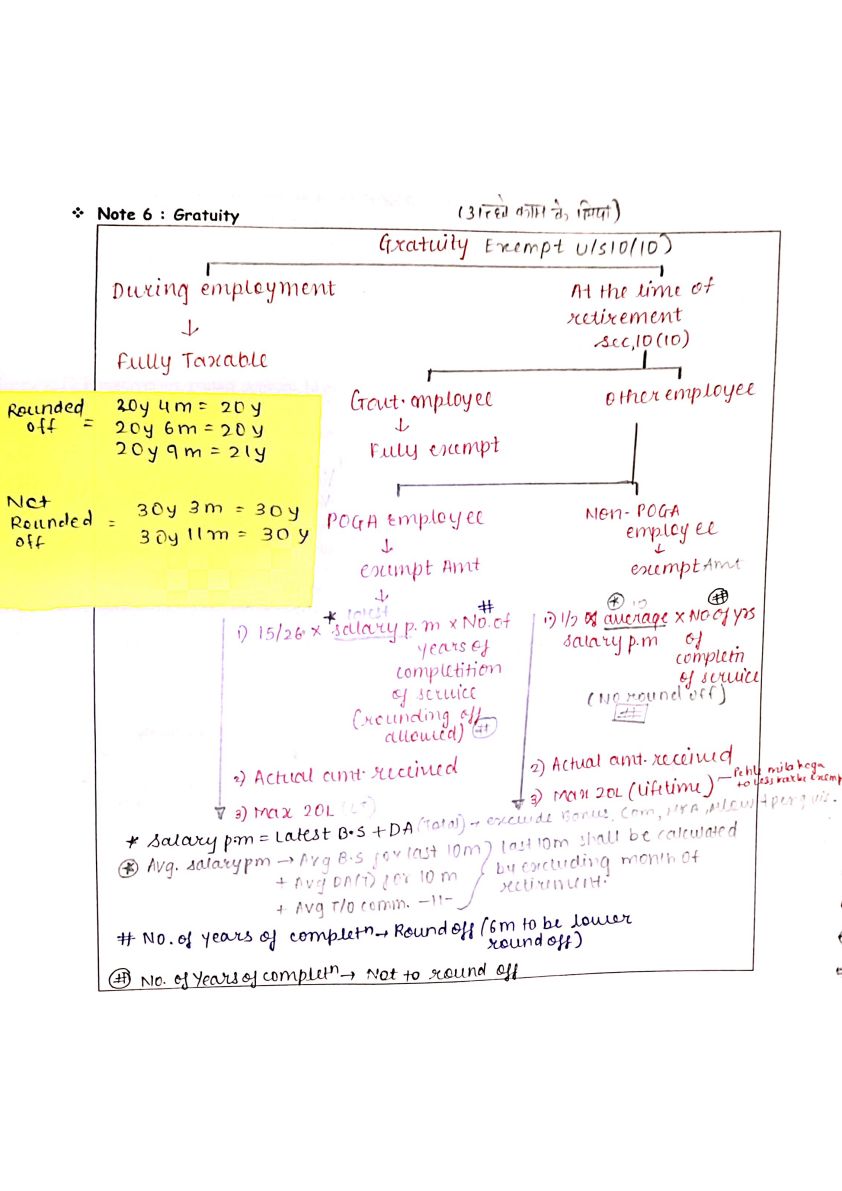 ❖ Note 6 : Gratuity
(अच्छे काम के लिए)
Gratuity Exempt u/s10(10)
During employment
↓
Fully Taxable
At the time of
retirement
sec,10(10)
Govt. employee
↓
Fully exempt
Other employee
Rounded off =
20y 4m = 20y
20y 6m = 20y
20y 9m = 21y
Not Rounded off =
30y 3m = 30y
30y 11m = 30y
POGA Employee
↓
exempt Amt
↓
latest
1) 15/26 × *salary p.m × #No. of
years of
completition
of service
(rounding off
allowed) #
2) Actual amt. received
3) Max 20L
Non-POGA
employee
↓
exempt Amt
1) 1/2 of average × No. of yrs
salary p.m of
completn
of service
(No round off)
#
2) Actual amt. received
3) Max 20L (lifetime)
* Salary p.m = Latest B.S + DA (Total) → exclude Bonus, Com, HRA,
* Avg. salary pm → Avg B.S for last 10m
+ Avg DA(T) for 10 m
+ Avg T/O comm. -11-
last 10m shall be calculated
by excluding month of
retirement.
# No. of years of completn → Round off (6m to be lower
round off)
# No. of Years of completn → Not to round off